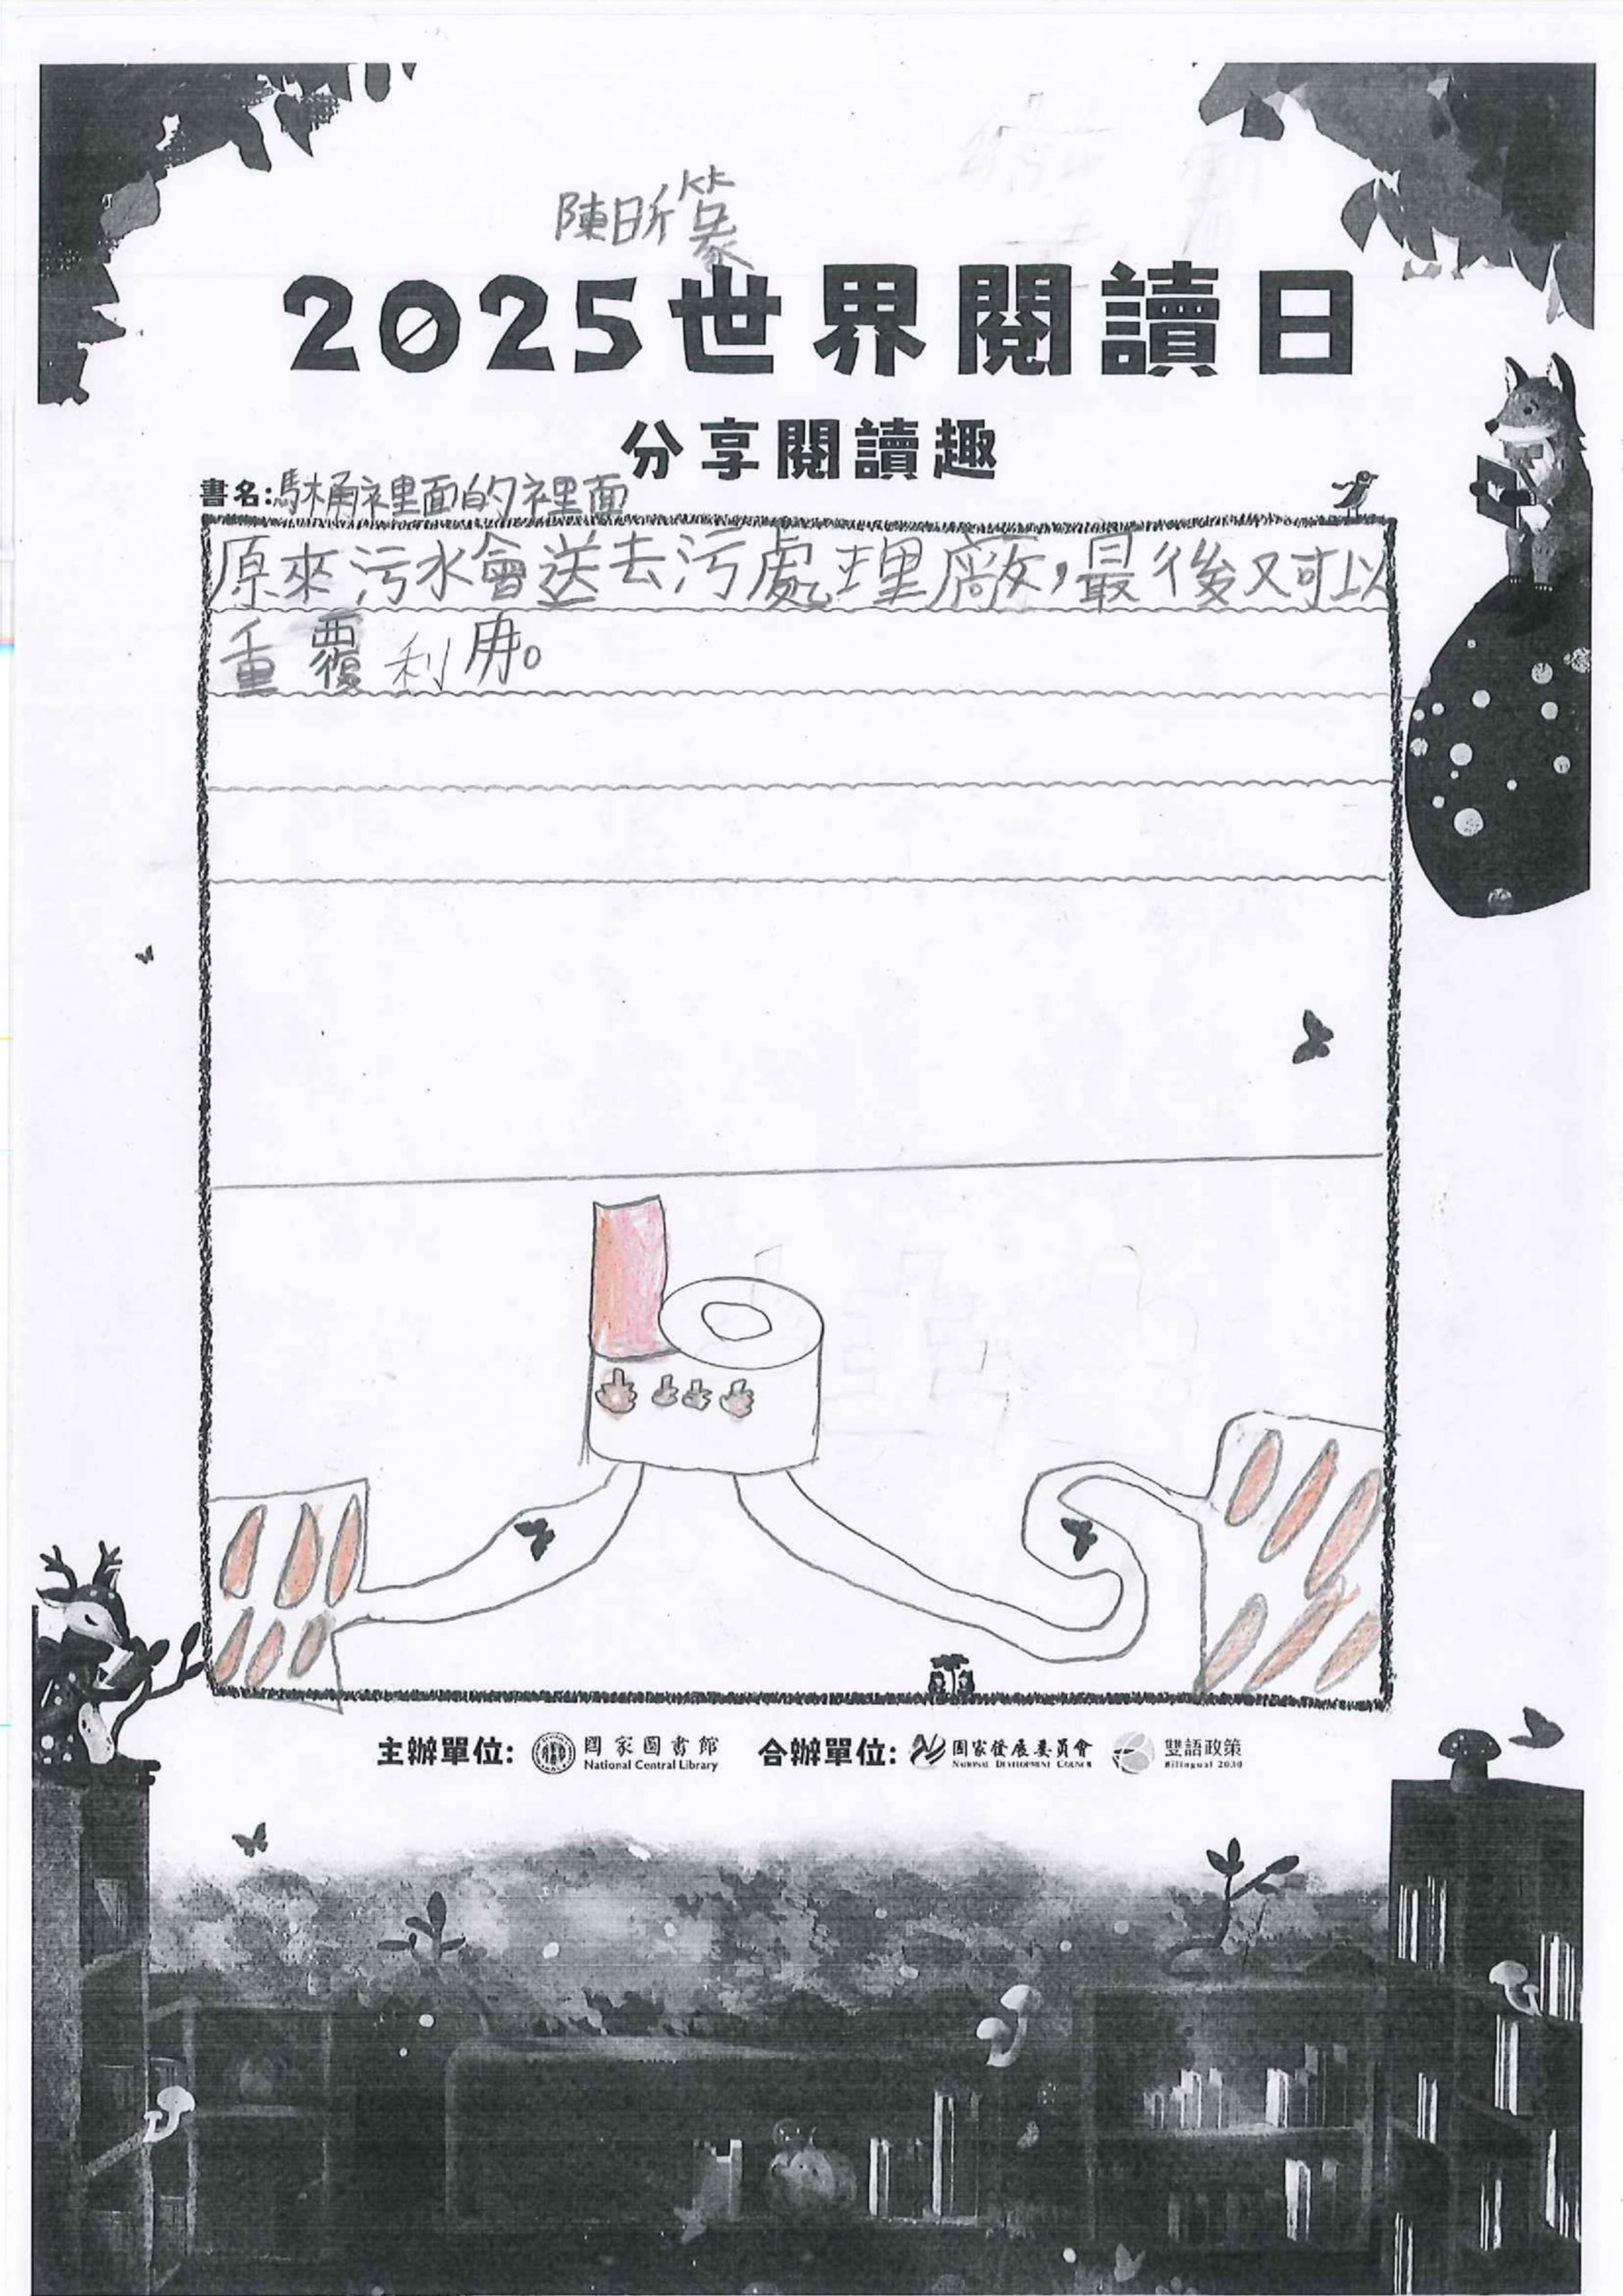 陳昕篆
2025世界閱讀日
分享閱讀趣
書名:馬桶裡面的裡面
原來污水會送去污處理廠,最後又可以
重覆利用。
主辦單位: 國家圖書館 合辦單位: 國家發展委員會 雙語政策
National Central Library NATIONAL DEVELOPMENT COUNCIL Bilingual 2030